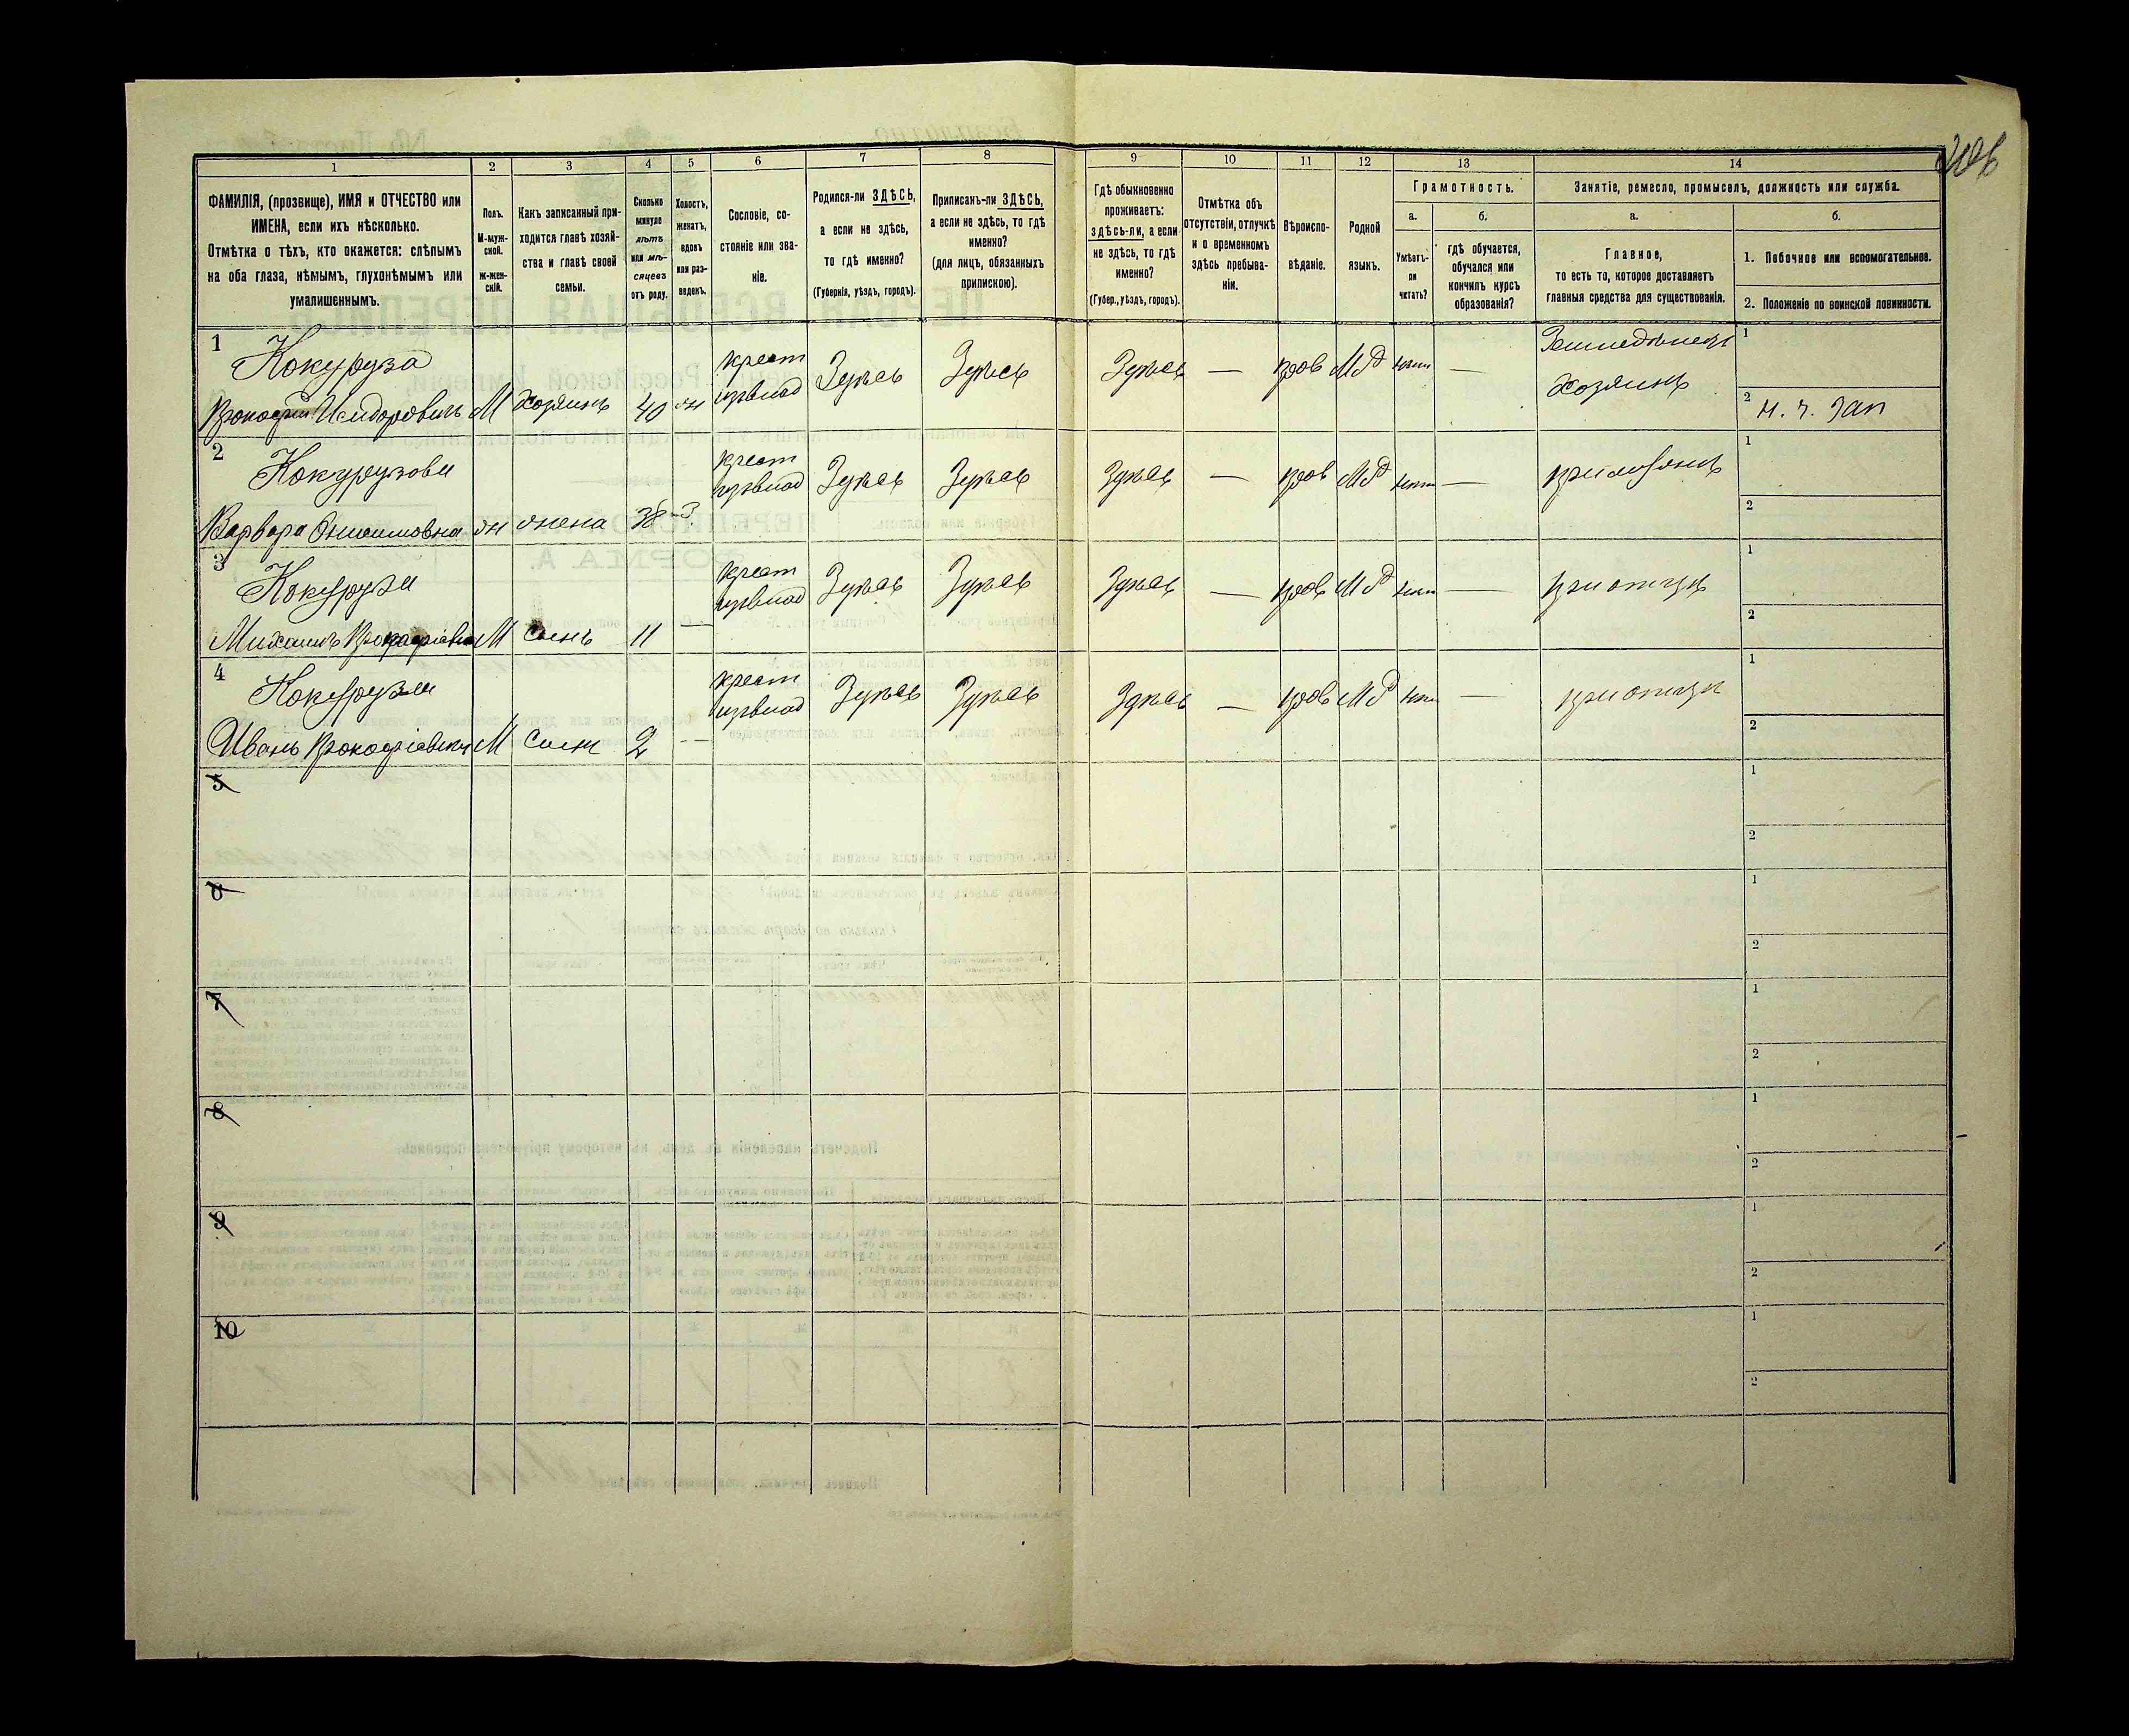 1
2
3
4
5
6
7
8
9
10
11
12
13
14
ФАМИЛІЯ, (прозвище), ИМЯ и ОТЧЕСТВО или
ИМЕНА, если ихъ нѣсколько.
Отмѣтка о тѣхъ, кто окажется: слѣпымъ
на оба глаза, нѣмымъ, глухонѣмымъ или
умалишеннымъ.
Полъ.
М-муж-
ской.
ж-жен-
скій.
Какъ записанный при-
ходится главѣ хозяй-
ства и главѣ своей
семьи.
Сколько
минуло
лѣтъ
или мѣ-
сяцевъ
отъ роду.
Холостъ,
женатъ,
вдовъ
или раз-
веденъ.
Сословіе, со-
стояніе или зва-
ніе.
Родился-ли ЗДѢСЬ,
а если не здѣсь,
то гдѣ именно?
(Губернія, уѣздъ, городъ).
Приписанъ-ли ЗДѢСЬ,
а если не здѣсь, то гдѣ
именно?
(для лицъ, обязанныхъ
припискою).
Гдѣ обыкновенно
проживаетъ:
здѣсь-ли, а если
не здѣсь, то гдѣ
именно?
(Губер., уѣздъ, городъ).
Отмѣтка объ
отсутствіи, отлучкѣ
и о временномъ
здѣсь пребыва-
ніи.
Вѣроиспо-
вѣданіе.
Родной
языкъ.
Грамотность.
а.
Умѣетъ-
ли
читать?
б.
гдѣ обучается,
обучался или
кончилъ курсъ
образованія?
Занятіе, ремесло, промыселъ, должность или служба.
а.
Главное,
то есть то, которое доставляетъ
главныя средства для существованія.
б.
1. Побочное или вспомогательное.
2. Положеніе по воинской повинности.
1
Кокуруза
Прокофій Исидоровичъ М Хозяинъ 40 ж
крест
Здѣсь Здѣсь Здѣсь — прав МР нѣт —
Земледѣлецъ
Хозяинъ
1
2 н. ч. зап
2
Кокурузова
Варвара Онисимовна ж жена 38 З.
крест
Здѣсь Здѣсь Здѣсь — прав МР нѣт —
1
2
3
Кокуруза
Михаилъ М Сынъ 11 —
крест
Здѣсь Здѣсь Здѣсь — прав МР нѣт — при отцѣ
1
2
4
Кокуруза
Иванъ М Сынъ 2 —
крест
Здѣсь Здѣсь Здѣсь — прав МР нѣт — при отцѣ
1
2
5
1
2
6
1
2
7
1
2
8
1
2
9
1
2
10
1
2